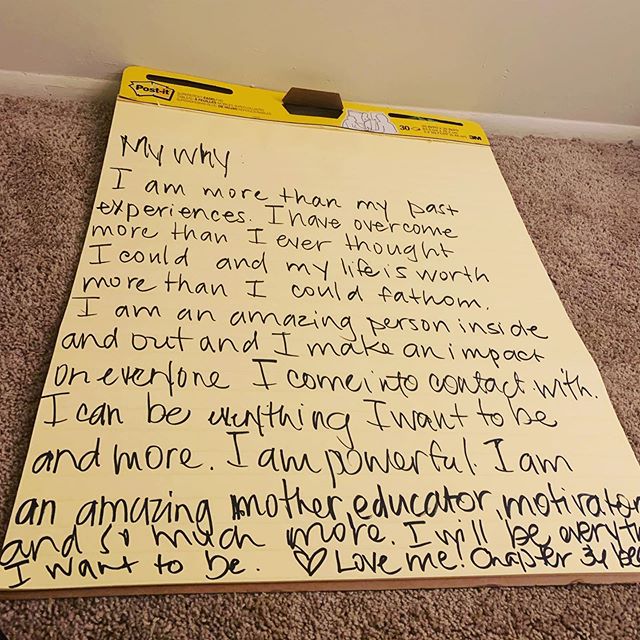 Post-it
30
3M
My Why:
I am more than my past
experiences. I have overcome
more than I ever thought
I could and my life is worth
more than I could fathom.
I am an amazing person inside
and out and I make an impact
on everyone I come into contact with.
I can be everything I want to be
and more. I am powerful. I am
an amazing mother, educator, motivator
and so much more. I will be everyth
I want to be. ♡ Love me! Chapter 34